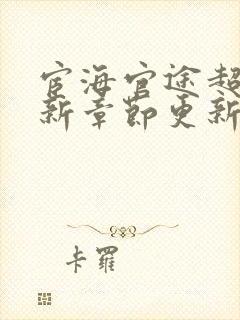 宦海官途超
新章节更新
卡罗